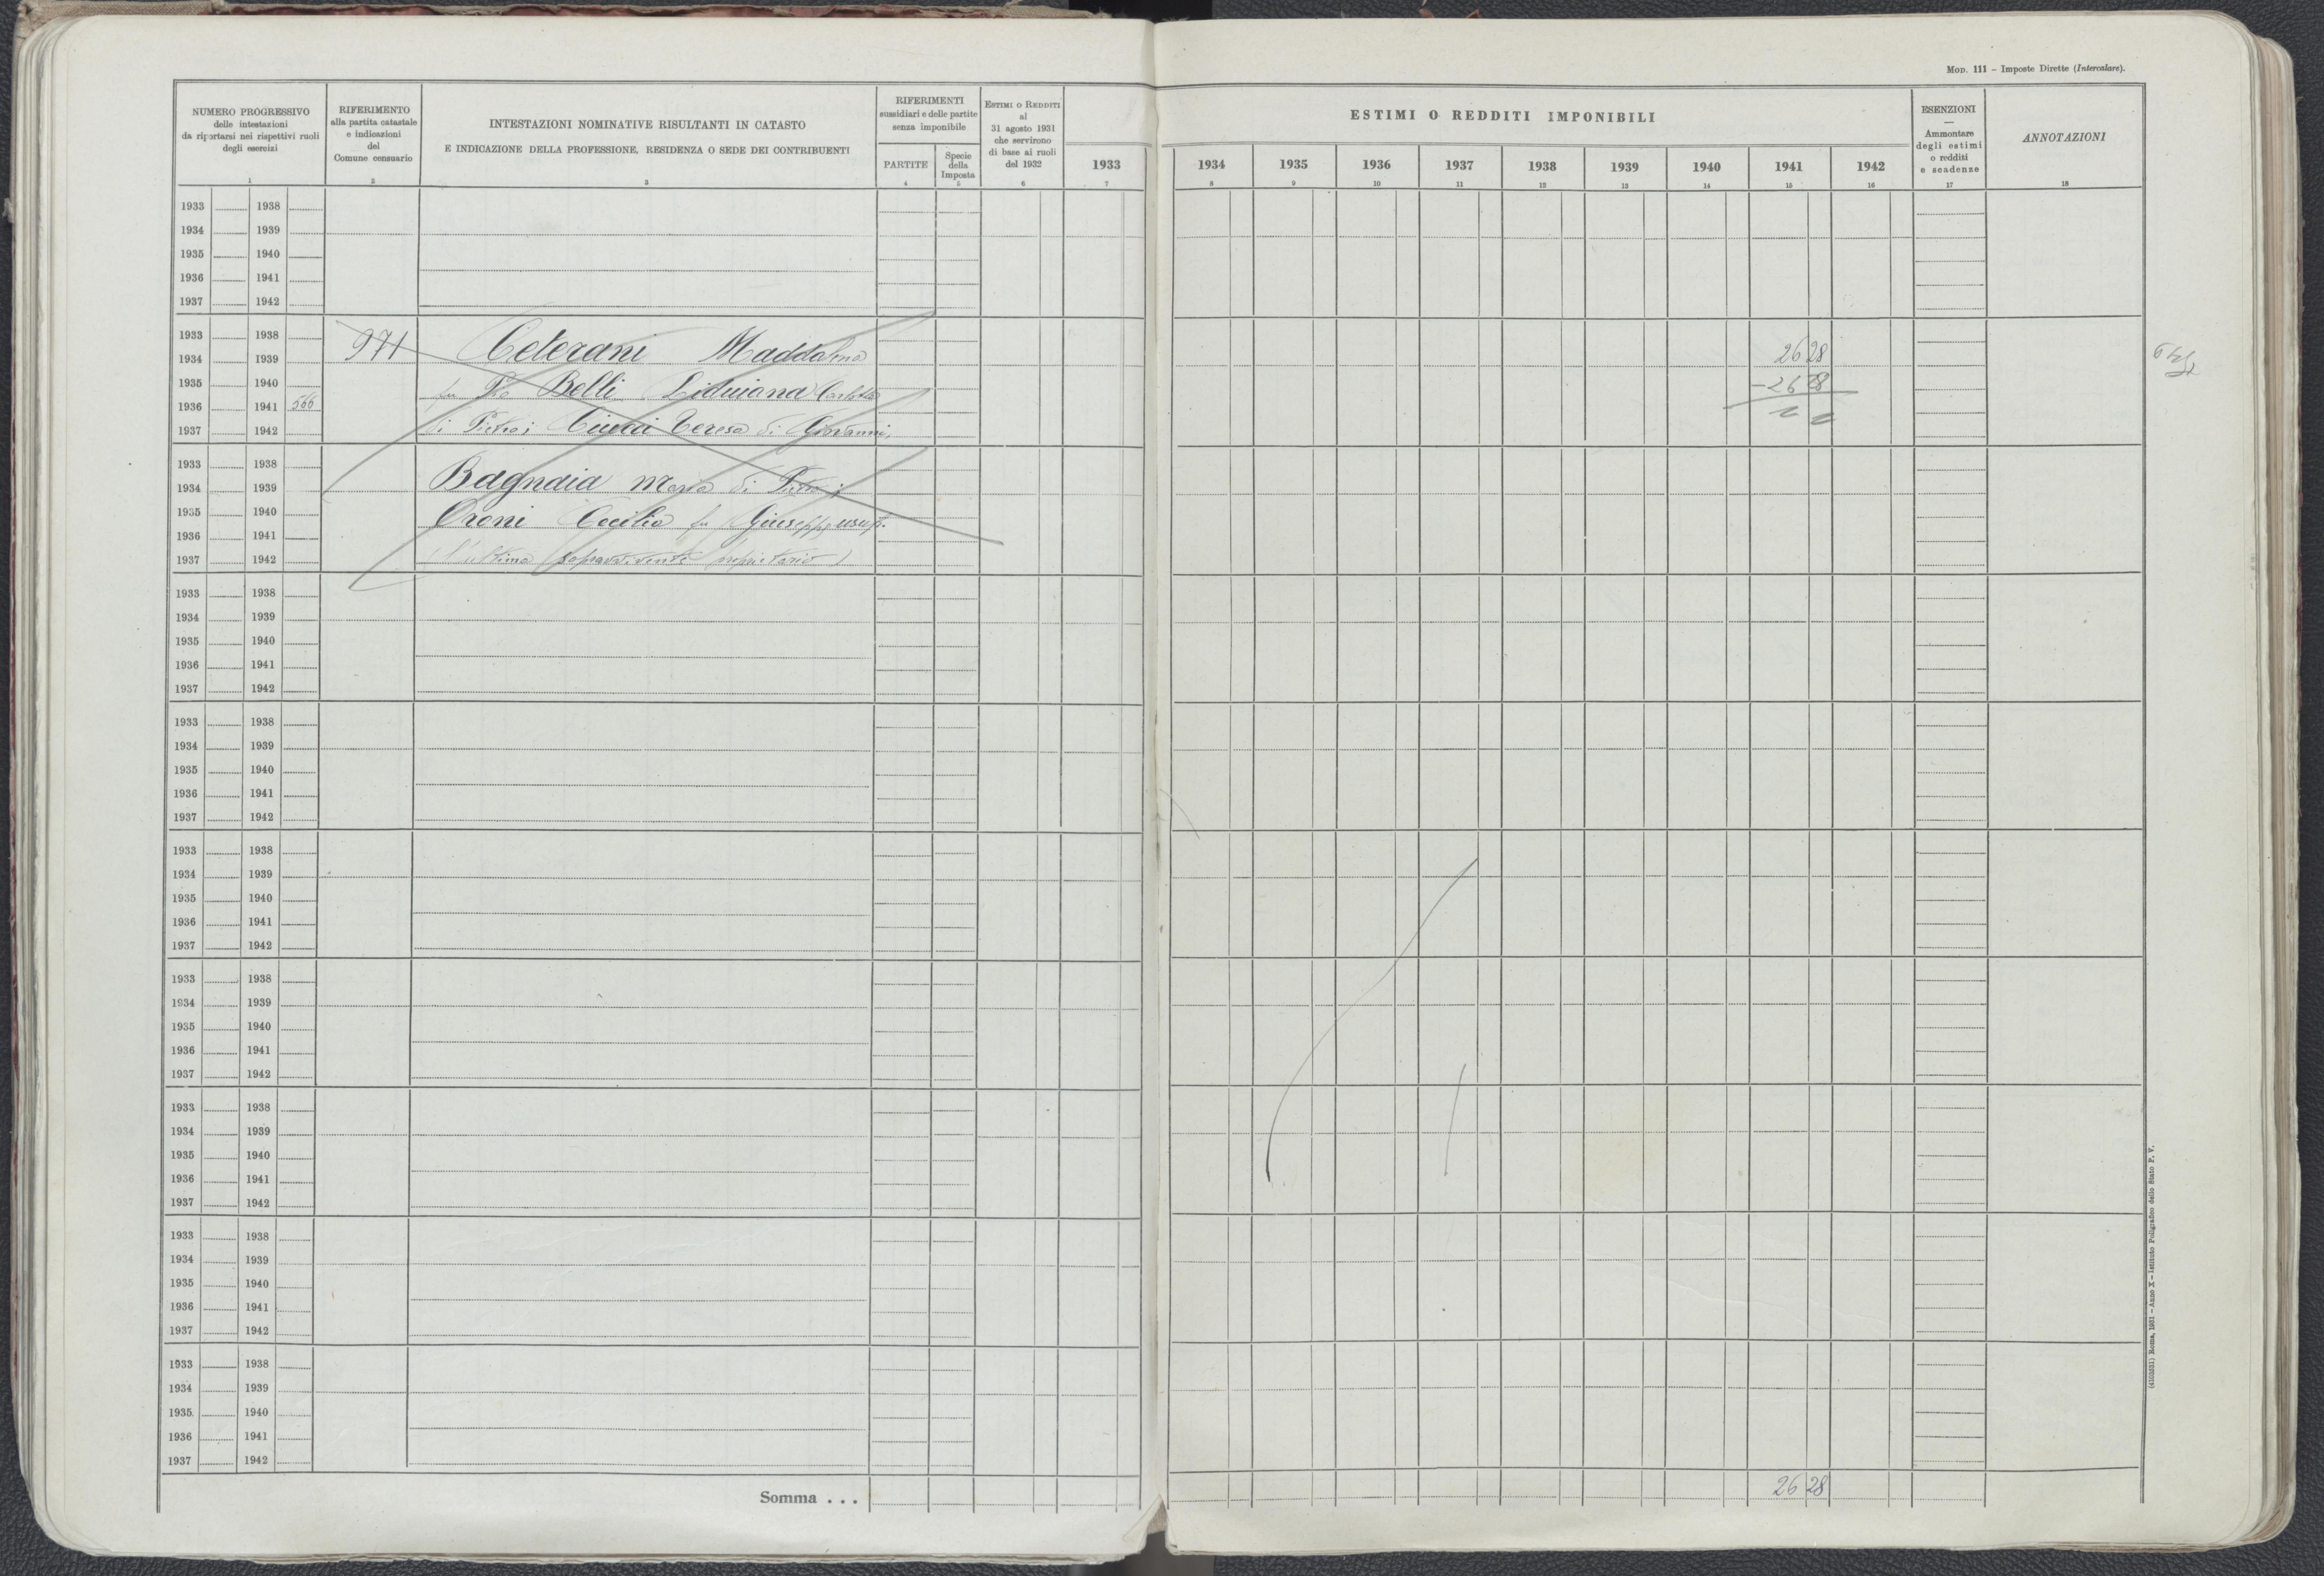 MOD. 111 – Imposte Dirette (Intercalare).
NUMERO PROGRESSIVO
delle intestazioni
da riportarsi nei rispettivi ruoli
degli esercizi
1
RIFERIMENTO
alla partita catastale
e indicazioni
del
Comune censuario
2
INTESTAZIONI NOMINATIVE RISULTANTI IN CATASTO
E INDICAZIONE DELLA PROFESSIONE, RESIDENZA O SEDE DEI CONTRIBUENTI
3
RIFERIMENTI
sussidiari e delle partite
senza imponibile
PARTITE
4
Specie
della
Imposta
5
ESTIMI O REDDITI
al
31 agosto 1931
che servirono
di base ai ruoli
del 1932
6
ESTIMI O REDDITI IMPONIBILI
1933 1934 1935 1936 1937 1938 1939 1940 1941 1942
7 8 9 10 11 12 13 14 15 16
ESENZIONI
—
Ammontare
degli estimi
o redditi
e scadenze
17
ANNOTAZIONI
18
1933 1938
1934 1939
1935 1940
1936 1941
1937 1942
1933 1938
971 Ceterani Maddalena 2628
1934 1939
fu Pio Belli Liduiana
1935 1940 -2628
1936 1941 566
di Pietro; Ciucci Teresa di Giovanni,
1937 1942
1933 1938
Bagnaia Maria di Pietro;
1934 1939
1935 1940
Croni Cecilia fu Giuseppe usuf.
1936 1941
1937 1942
(l'ultima sopravvivente proprietaria)
1933 1938
1934 1939
1935 1940
1936 1941
1937 1942
1933 1938
1934 1939
1935 1940
1936 1941
1937 1942
1933 1938
1934 1939
1935 1940
1936 1941
1937 1942
1933 1938
1934 1939
1935 1940
1936 1941
1937 1942
1933 1938
1934 1939
1935 1940
1936 1941
1937 1942
1933 1938
1934 1939
1935 1940
1936 1941
1937 1942
1933 1938
1934 1939
1935 1940
1936 1941
1937 1942
Somma . . . 2628
(410331) Roma, 1931 – Anno X – Istituto Poligrafico dello Stato P. V.